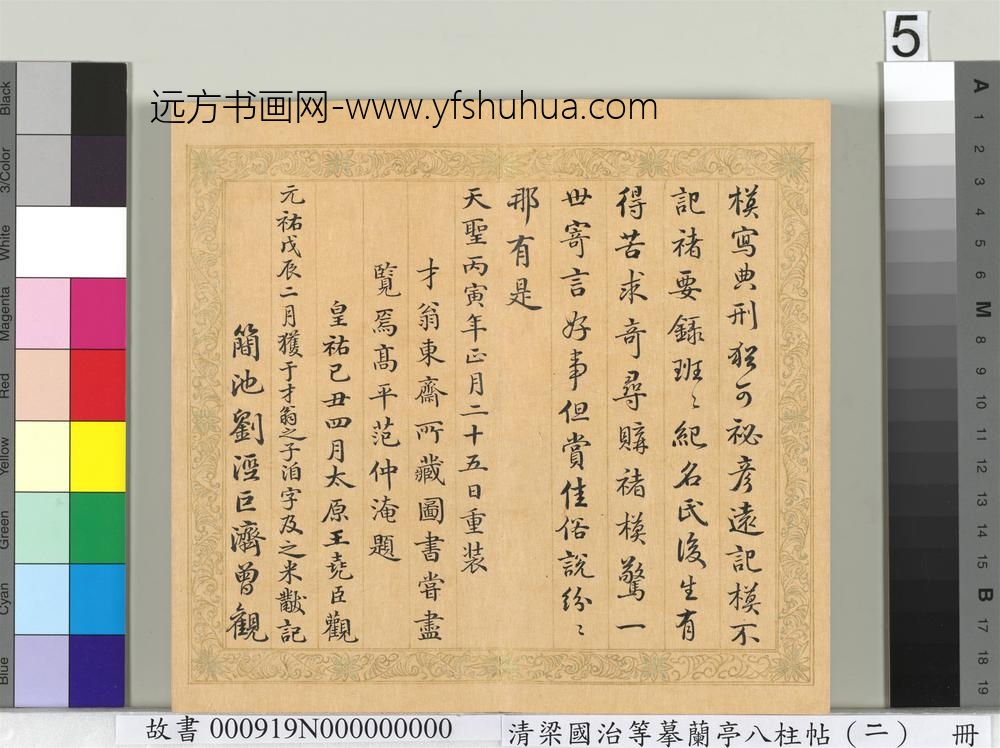 远方书画网-www.yfshuhua.com
5
模寫典刑猶可祕彥遠記模不
記褚要錄班〻紀名氏後生有
得苦求奇尋購褚模驚一
世寄言好事但賞佳俗說紛〻
那有是
天聖丙寅年正月二十五日重装
才翁東齋所藏圖書嘗盡
覽焉高平范仲淹題
皇祐己丑四月太原王堯臣觀
元祐戊辰二月獲于才翁之子洎字及之米黻記
簡池劉涇巨濟曾觀
Black
3/Color
White
Magenta
Red
Yellow
Green
Cyan
Blue
A
1
2
3
4
5
6
M
8
9
10
11
12
13
14
15
B
17
18
19
故書 000919N000000000
清梁國治等摹蘭亭八柱帖（二） 冊